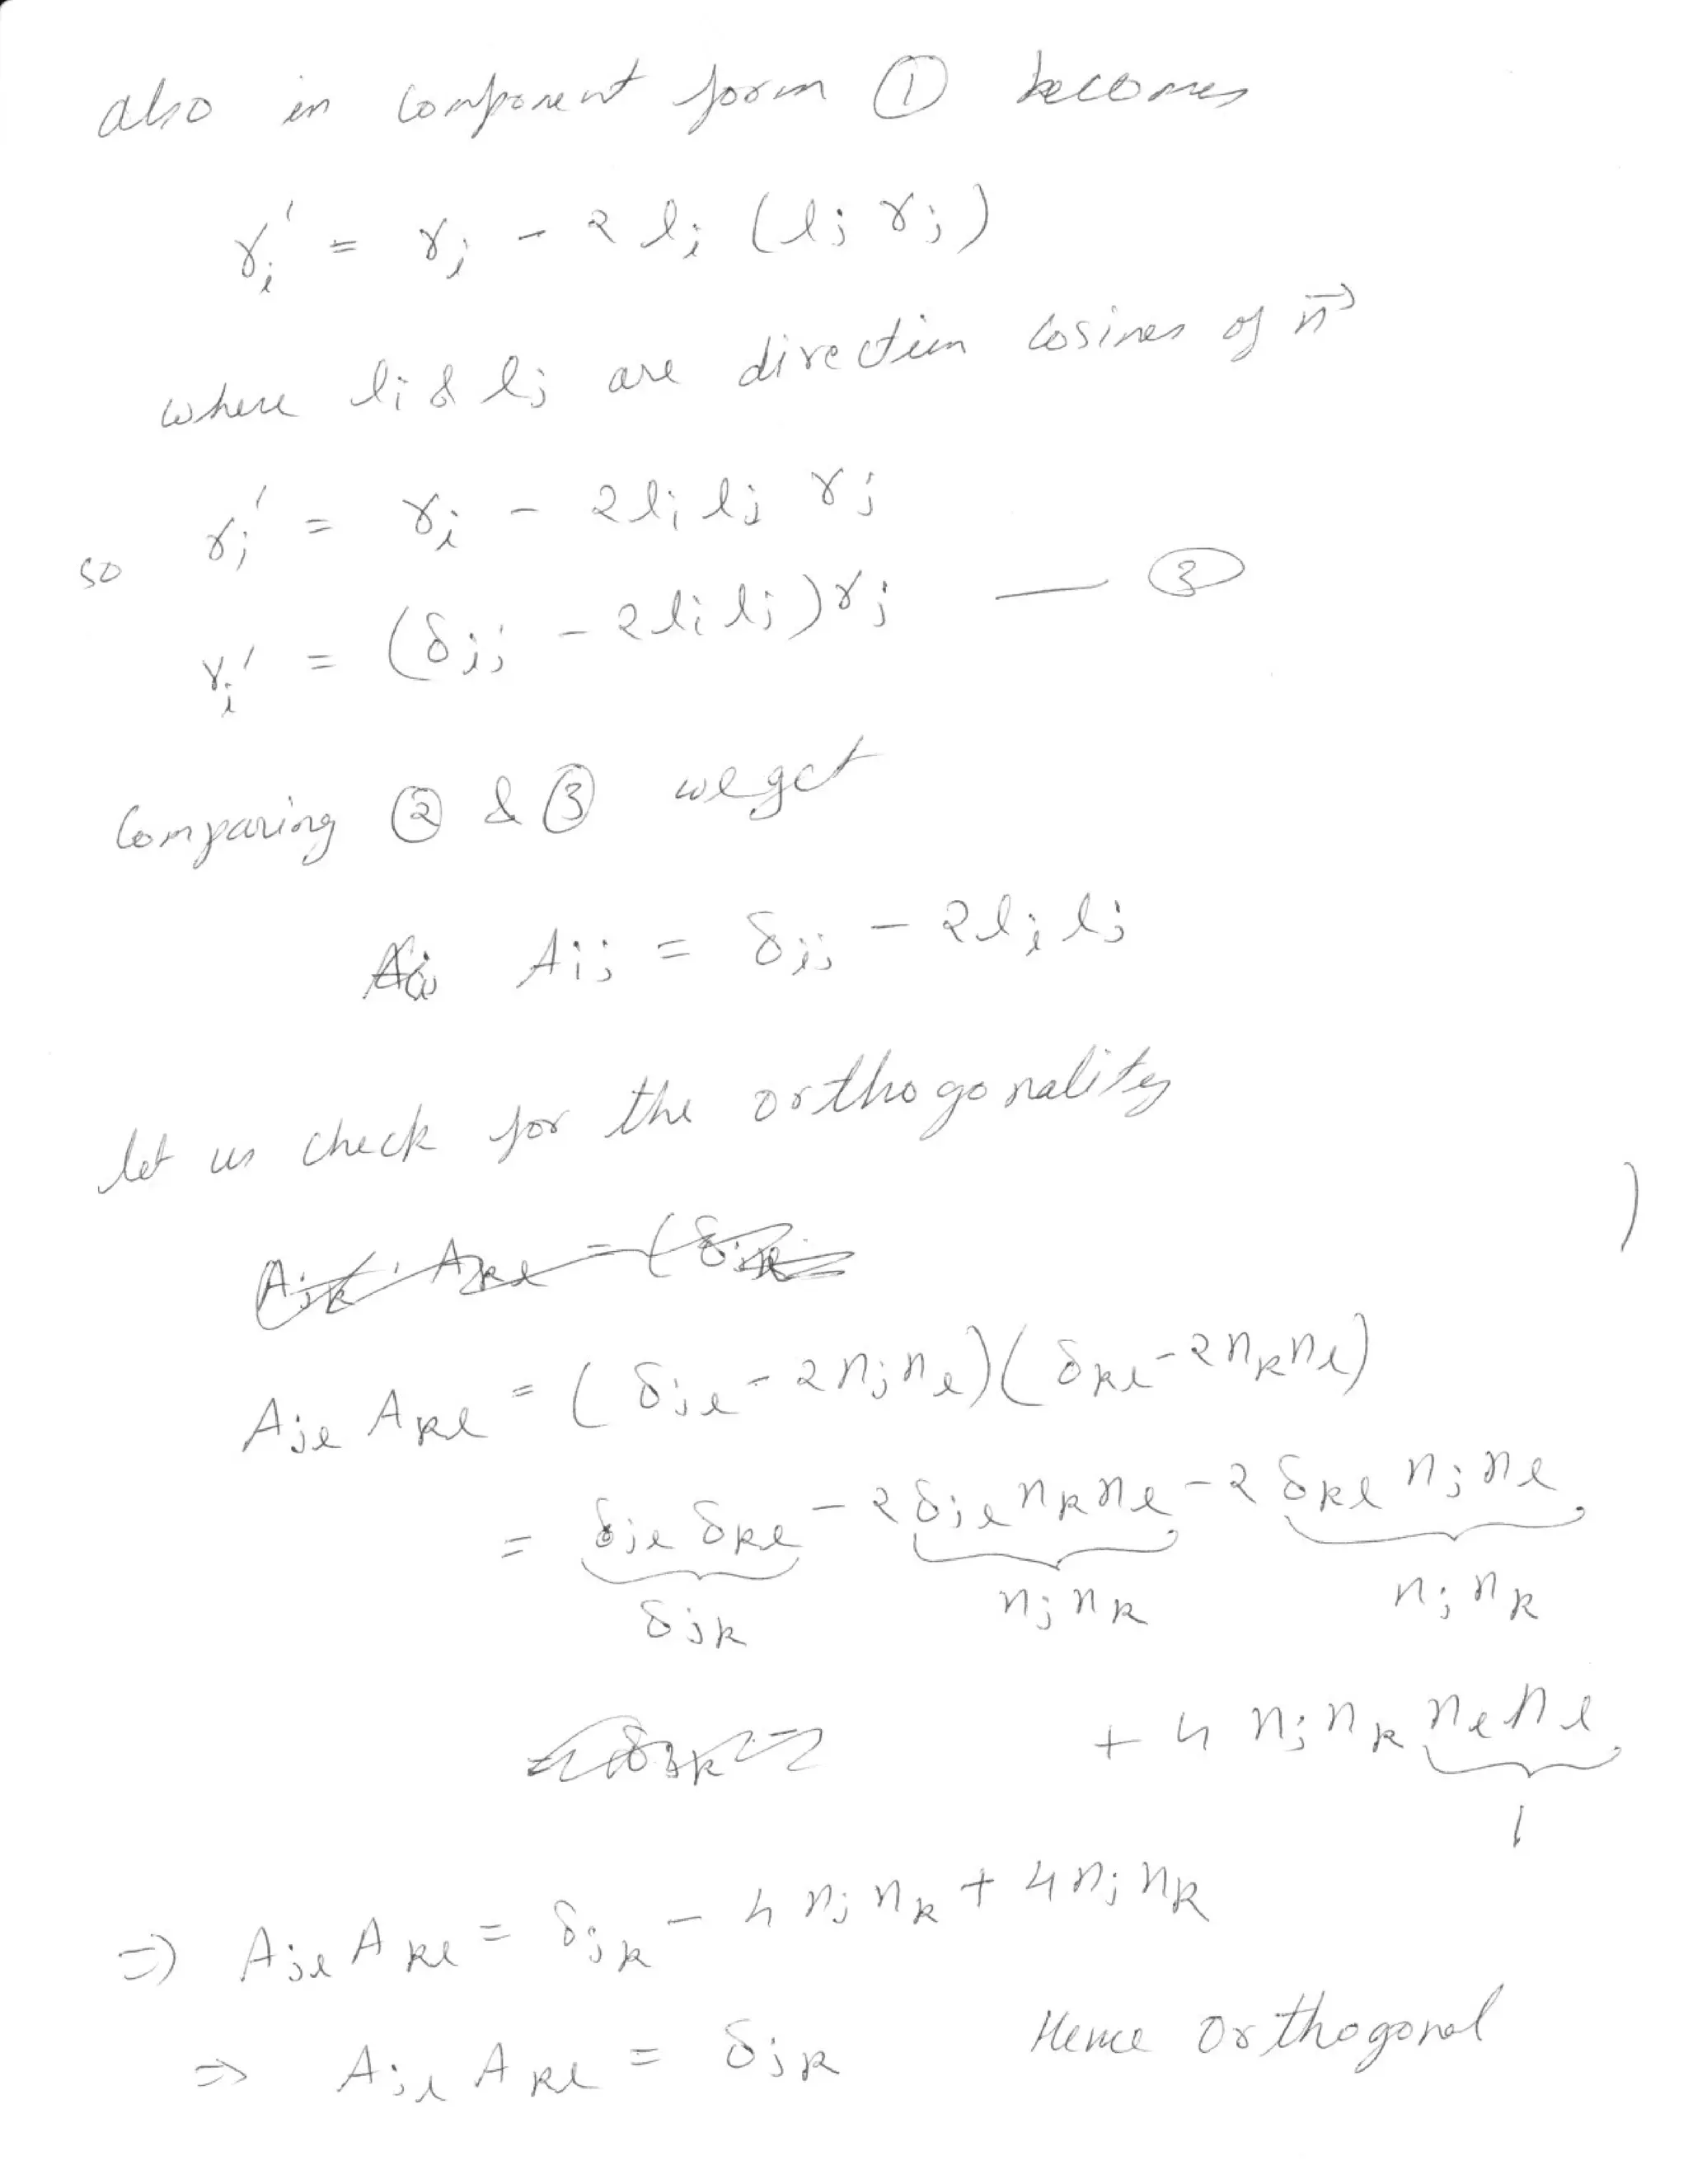 also in component form ① becomes
rᵢ' = rᵢ - 2 lᵢ (lⱼ rⱼ)
where lᵢ & lⱼ are direction cosines of n⃗
so rᵢ' = rᵢ - 2lᵢ lⱼ rⱼ
rᵢ' = (δᵢⱼ - 2lᵢlⱼ)rⱼ — ③
Comparing ② & ③ we get
Aᵢⱼ = δᵢⱼ - 2lᵢlⱼ
let us check for the orthogonality
)
Aⱼₗ Aₖₗ = (δⱼₗ - 2nⱼnₗ)(δₖₗ - 2nₖnₗ)
= δⱼₗ δₖₗ - 2δⱼₗ nₖnₗ - 2 δₖₗ nⱼnₗ
δⱼₖ nⱼnₖ nⱼnₖ
+ 4 nⱼnₖ nₗnₗ
1
⇒ Aⱼₗ Aₖₗ = δⱼₖ - 4 nⱼnₖ + 4nⱼnₖ
⇒ Aⱼₗ Aₖₗ = δⱼₖ Hence Orthogonal